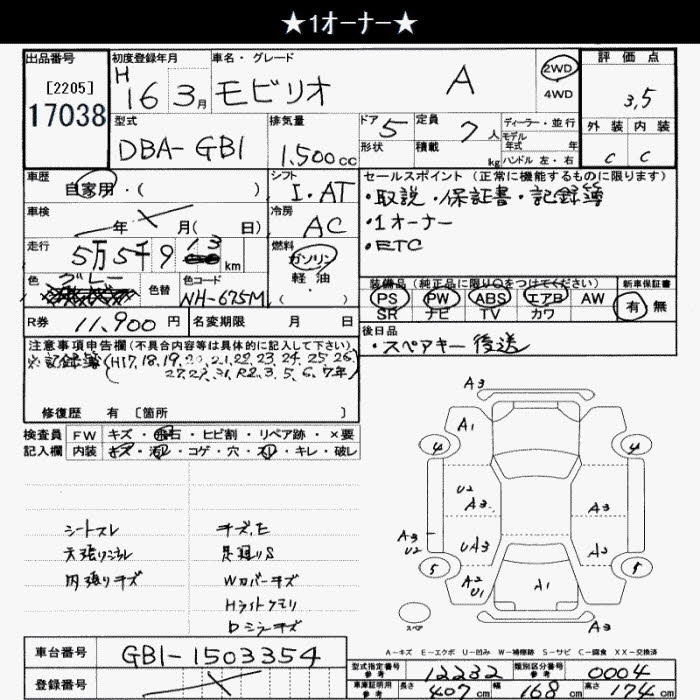 ★1オーナー★
出品番号
[2205]
17038
初度登録年月
H 16 3月
車名・グレード
モビリオ A
2WD
4WD
評価点
3,5
外装 内装
C C
型式
DBA-GB1
排気量
1.500cc
ドア 5
形状
定員 7人
積載 kg
ディーラー・並行
モデル年式 年
ハンドル 左・右
車歴
自家用・( )
シフト
I.AT
車検
年 月( 日)
冷房
AC
走行
5万5千9 13 km
燃料
ガソリン
軽油
・( )
色
グレー
色替
色コード
NH-675M
R券 11,900 円
名変期限 月 日
セールスポイント(正常に機能するものに限ります)
・取説・保証書・記録簿
・1オーナー
・ETC
装備品(純正品に限り○をつけてください)
PS PW ABS エアB AW
SR ナビ TV カワ
新車保証書
有 無
後日品
・スペアキー後送
注意事項申告欄(不具合内容等は具体的に記入して下さい)
※記録簿(H17,18,19,20,21,22,23,24,25,26,
27,29,31,R2,3,5,6,7年)
修復歴 有 [箇所 ]
検査員 FW キズ・飛石・ヒビ割・リペア跡・×要
記入欄 内装 キズ・汚レ・コゲ・穴・スレ・キレ・破レ
シートスレ
天張りシミ
内張りキズ
キズ,E
足廻りS
Wカバーキズ
Hライトクモリ
Dミラーキズ
A3
A1
4 4
U2
A3 A3
A3
U2
UA3 A3
5 5
A2
U1
A1
スペア
A3
A-キズ E-エクボ U-凹み W-補修跡 S-サビ C-腐食 XX-交換済
車台番号 GB1-1503354
登録番号
型式指定番号
参考
12232
類別区分番号
参考
0004
車庫証明用
参考
長さ 407cm 幅 168cm 高さ 174cm